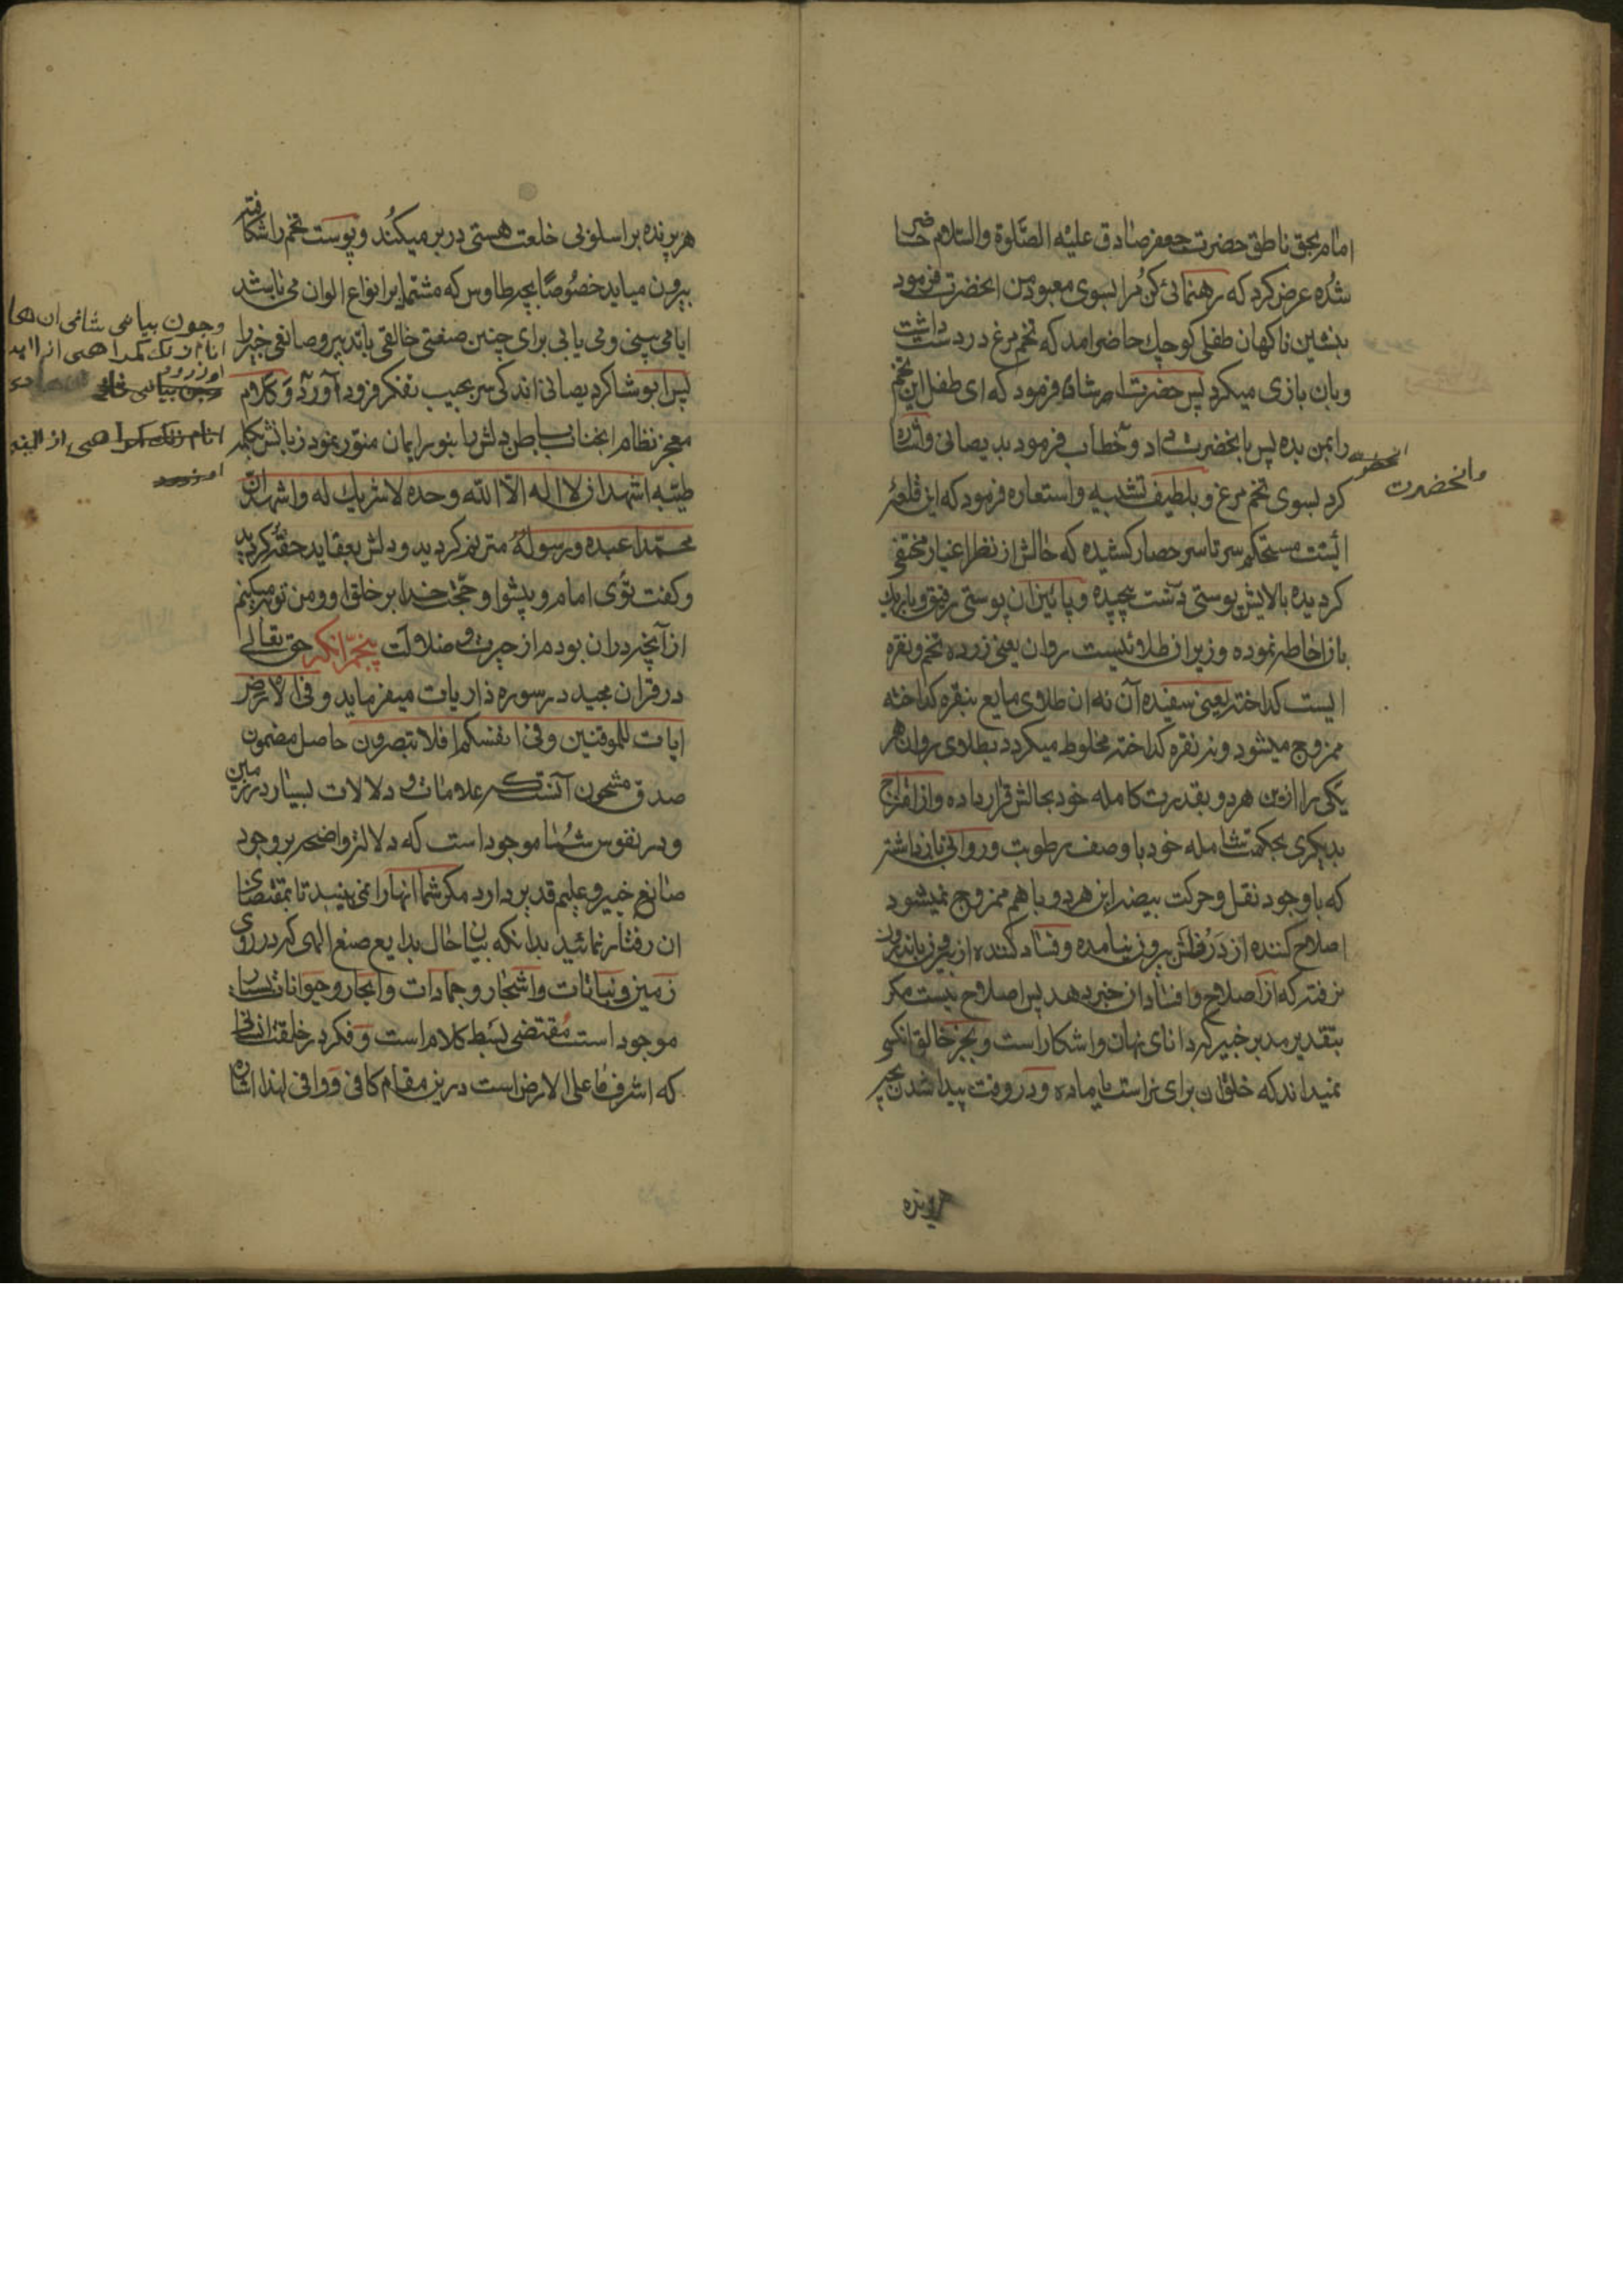 امام بحق ناطق حضرت جعفر صادق علیه الصّلوة والسّلام حاضر
شده عرض کرد که رهنمائی کن مرا بسوی معبود من انحضرت فرمود
بنشین ناکهان طفلی کوچك حاضر امد که تخم مرغ در دست داشت
وبان بازی میکرد پس حضرت فرمود که ای طفل این تخم
را بمن بده پس بانحضرت داد وخطاب فرمود بدیصانی واشاره
وانحضرت
کرد بسوی تخم مرغ و بلطیف تشبیه واستعاره فرمود که این قلعهٔ
ائیست مستحکم سر تا سر حصار کشیده که حالش از نظر اغیار مختفی
کردیده بالایش پوستی درشت پیچیده وپائین ان پوستی رقیق
باز احاطه نموده وزیر ان طلائیست روان یعنی زرده تخم ونقره
ایست کداخته یعنی سفیده آن نه ان طلای مایع بنقره کداخته
ممزوج میشود ونه نقره کداخته مخلوط میکردد بطلای روان هر
یکی را ازین هردو بقدرت کامله خود بحالش قرار داده واز امتزاج
بدیکری بحکمت شامله خود با وصف رطوبت وروانی باز داشته
که باوجود نقل وحرکت بیضه این هردو باهم ممزوج نمیشود
اصلاح کننده از درونش بیرون نیامده وفساد کننده از بیرون باندرون
نرفته که از اصلاح وافساد ان خبر دهد پس اصلاح نیست مکر
بتقدیر مدبر خبیر که دانای نهان واشکار است وبجز خالق انکسی
نمیداند که خلق ان برای نر است یا ماده ودر وقت پیدا شدن بچه
هر پرنده
هر پرنده بر اسلوبی خلعت هستی در بر میکند وپوست تخم را شکافته
بیرون میاید خصوصًا بچه طاوس که مشتمل بر انواع الوان می باشد
ایا می بینی ومی یابی برای چنین صنعتی خالقی با تدبیر وصانعی خبیر را
پس ابو شاکر دیصانی اندکی سر بجیب تفکر فرود آورد وکلام
معجز نظام انجناب باطن دلش را بنور ایمان منوّر نمود زبانش بکلمه
طیّبه اشهد ان لا اله الّا الله وحده لا شریك له واشهد انّ
محمّدا عبده ورسوله مترنم کردید ودلش بعقاید حقّه کروید
وکفت توئی امام وپیشوا وحجّت خدا بر خلق او ومن توبه میکنم
از آنچه در ان بودم از حیرت وضلالت پنجم آنکه حق تعالی
در قران مجید در سوره ذاریات میفرماید وفی الارض
ایات للموقنین وفی انفسکم افلا تبصرون حاصل مضمون
صدق مشحون آنست که علامات ودلالات بسیار در زمین
ودر نفوس شما موجود است که دلالة واضحه بر وجود
صانع خبیر وعلیم قدیر دارد مکر شما انها را نمی بینید تا بمقتضای
ان رفتار نمائید بدانکه بیان حال بدایع صنع الهی که در روی
زمین ونباتات واشجار وجمادات وابحار وحیوانات بسیار
موجود است مقتضی بسط کلام است وفکر در خلقت انسانی
که اشرف ما علی الارض است درین مقام کافی ووافی لهذا اشاره